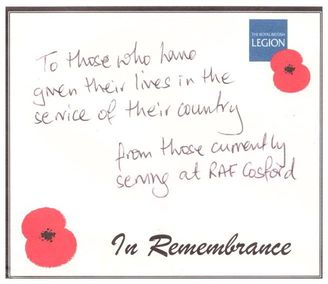 THE ROYAL BRITISH
LEGION
To those who have
given their lives in the
service of their country
from those currently
serving at RAF Cosford
In Remembrance